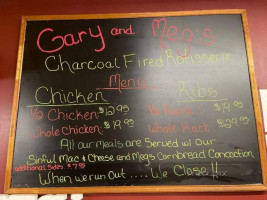 Gary and Meg's
Charcoal Fired Rotisserie
Menu
Chicken Ribs
1/2 Chicken $12.95 $19.95
Whole Chicken $19.95 Whole Rack $29.95
All our Meals are Served w/ Our
Sinful Mac & Cheese and Megs Cornbread Concoction
additional Sides $7.95
When we run Out .... We Close!!